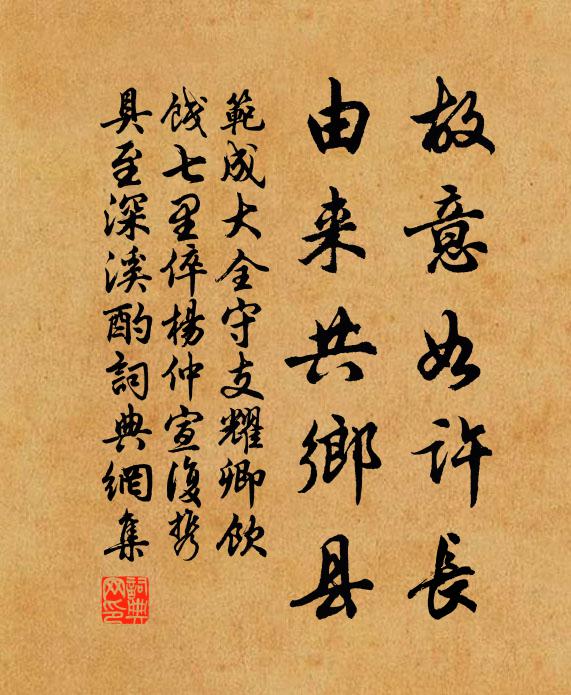 故意如许長
由来共鄉县
範成大全守支耀卿飲
餞七里倅楊仲宣復携
具至深溪酌詞典網集
詞典
网印